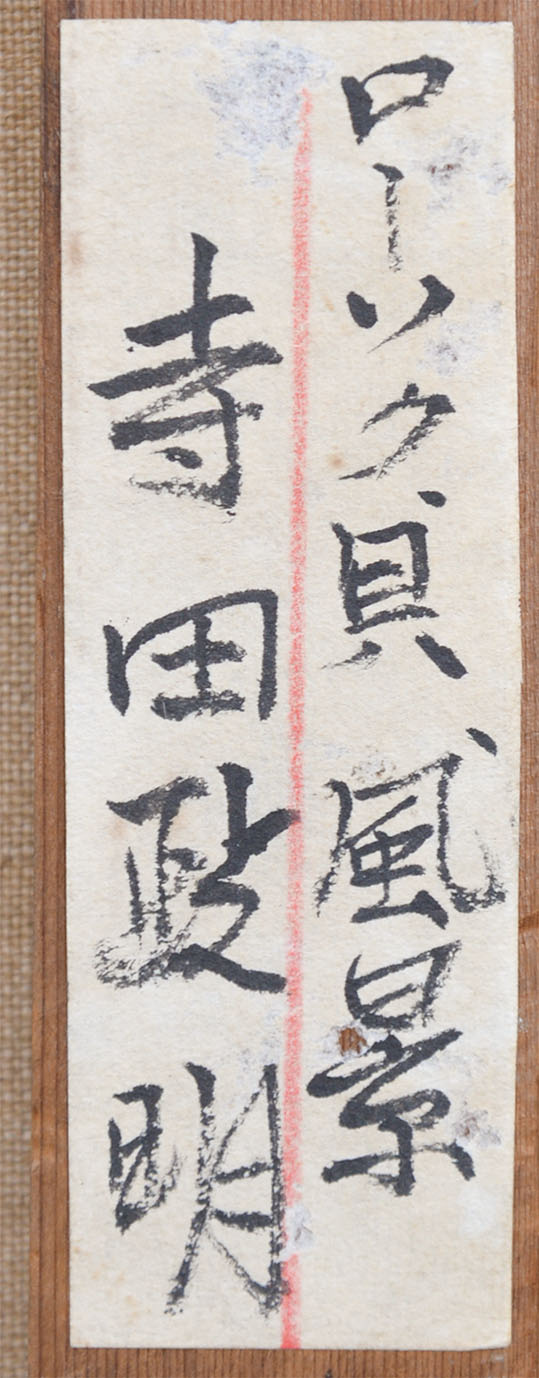 ローソク貝、風景
寺田政明